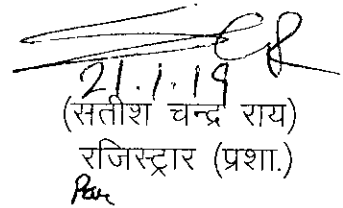 21.1.19
(सतीश चन्द्र राय)
रजिस्ट्रार (प्रशा.)